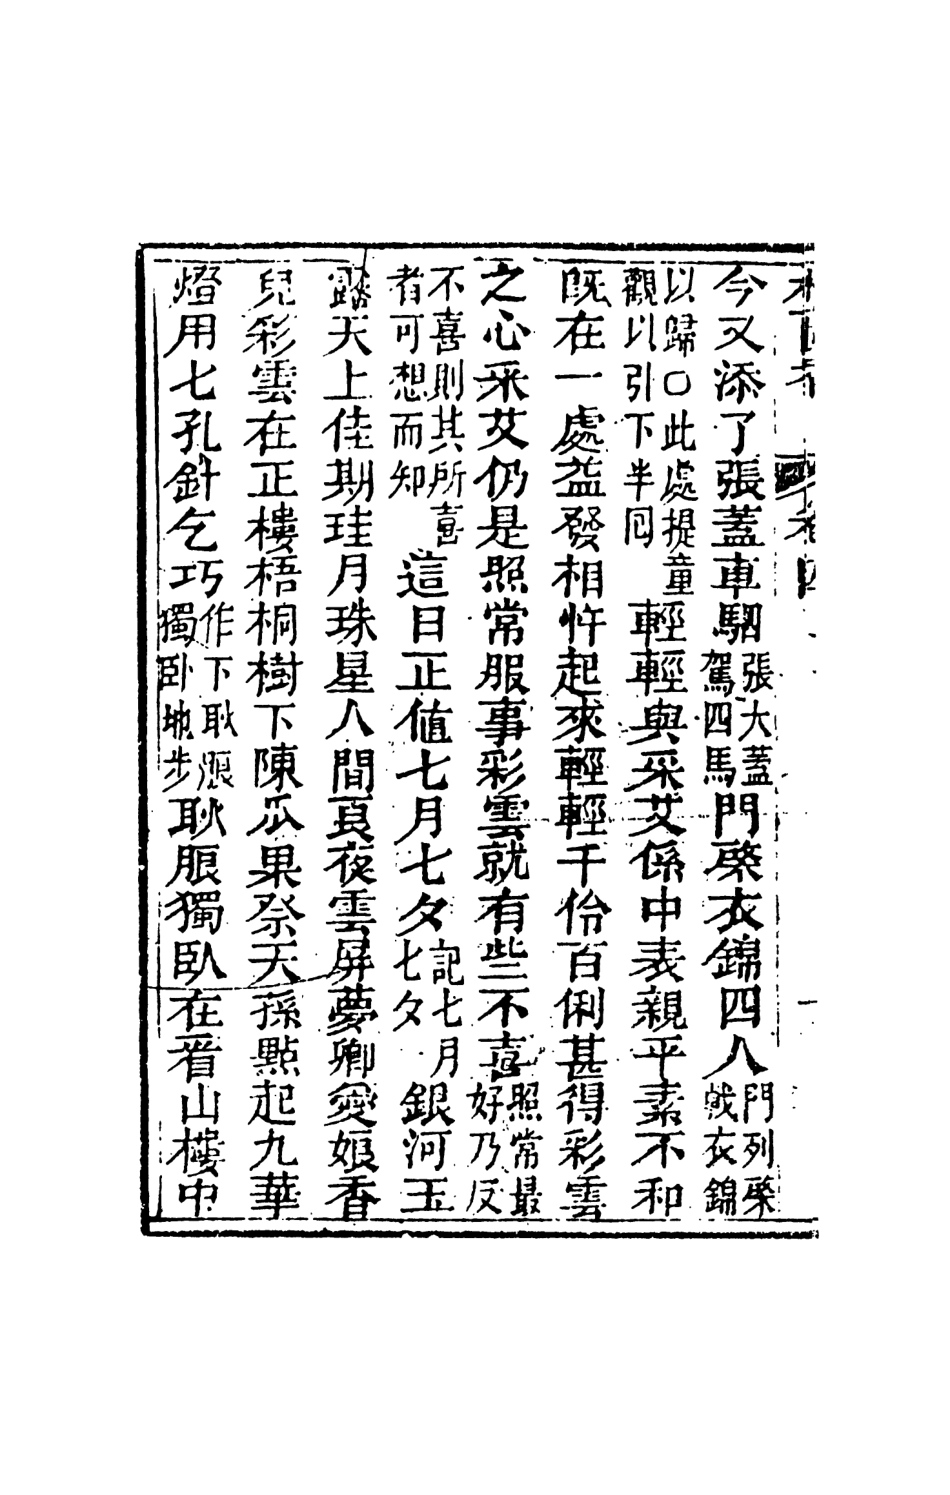 今又添了張蓋車駟張大蓋駕四馬門棨衣錦四人門列棨戟衣錦
以歸〇此處提童觀以引下半囘輕輕與采艾係中表親平素不和
旣在一處益發相忤起來輕輕千伶百俐甚得彩雲
之心采艾仍是照常服事彩雲就有些不喜照常最好乃反
不喜則其所喜者可想而知這日正值七月七夕記七月七夕銀河玉
露天上佳期珪月珠星人間良夜雲屏夢卿愛娘香
兒彩雲在正樓梧桐樹下陳瓜果祭天孫點起九華
燈用七孔針乞巧作下耿服獨卧地步耿服獨臥在看山樓中